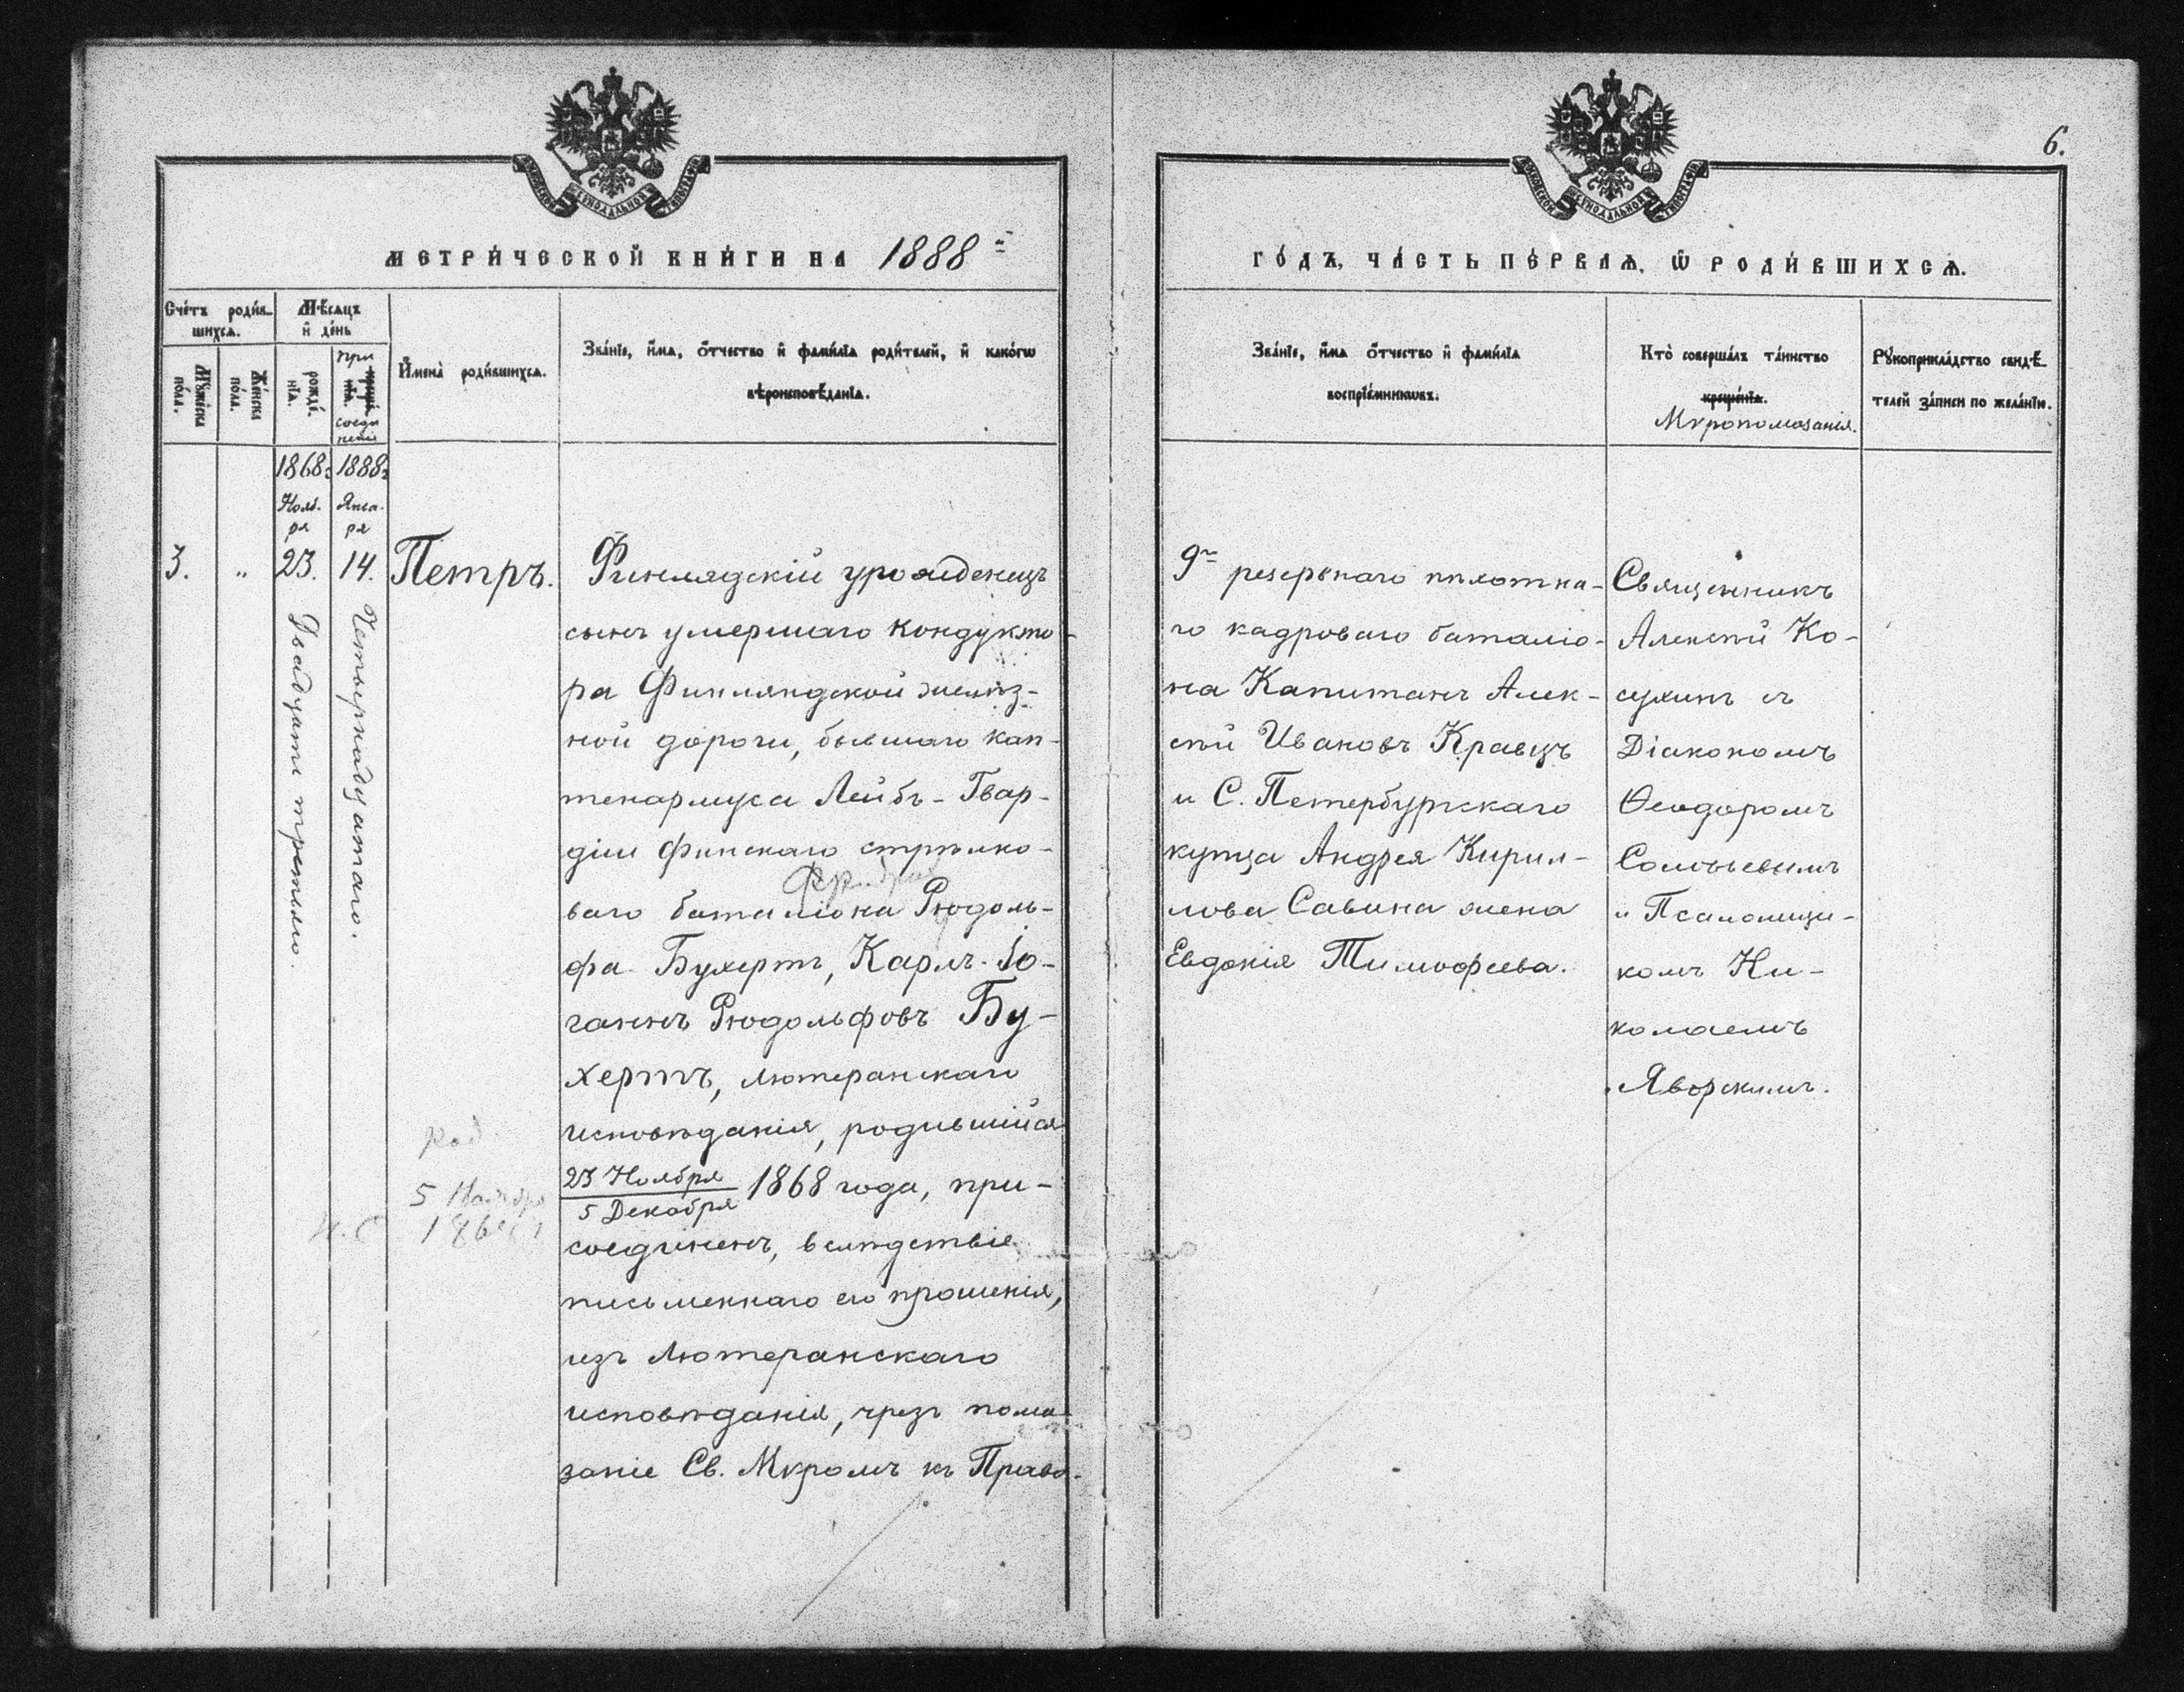 6.
МЕТРИ́ЧЕСКОЙ КНИ́ГИ НА 1888й
ГО́ДЪ, ЧА́СТЬ ПЕ́РВАѦ, Ѿ РОДИ́ВШИХСѦ.
Сче́тъ роди́в-
шихсѧ.
Мѣ́сѧцъ
и҆ де́нь
Мꙋ́жеска по́ла.
Же́нска по́ла.
рожде́нїѧ.
при
соеди
ненія
И҆мена̀ роди́вшихсѧ.
Зва́нїе, и҆́мѧ, ѻ҆́тчество и҆ фами́лїѧ роди́телей, и҆ како́гѡ
вѣроисповѣ́данїѧ.
Зва́нїе, и҆́мѧ ѻ҆́тчество и҆ фами́лїѧ
воспрїе́мникѡвъ.
Кто̀ соверша́лъ та́инство
креще́нїѧ.
Мѵропомазанія.
Рꙋкоприкла́дство свидѣ́-
телей за́писи по жела́нїю.
1868г. 1888г.
Нояб- Янва-
ря ря
3. „ 23. 14. Петръ.
Двадцать третьяго.
Четырнадцатаго.
Финлядскій уроженецъ
сынъ умершаго кондукто-
ра Финляндской желѣз-
ной дороги, бывшаго кап-
тенармуса Лейбъ-Гвар-
діи Финскаго стрѣлко-
ваго баталіона Рюдоль-
фа Бухертъ, Карлъ-Іо-
ганнъ Рюдольфовъ Бу-
хертъ, лютеранскаго
исповѣданія, родившійся
23 Ноября
5 Декабря 1868 года, при-
соединенъ, вслѣдствіе
письменнаго его прошенія,
изъ Лютеранскаго
исповѣданія, чрезъ пома-
заніе Св. Мѵромъ къ Право-
Род.
5
9го резервнаго пѣхотна-
го кадроваго баталіо-
на Капитанъ Алек-
сѣй Ивановъ Кравцъ
и С. Петербургскаго
купца Андрея Кирил-
лова Савина жена
Евдокія Тимофеева.
Священникъ
Алексѣй Ко-
сухинъ съ
Діакономъ
Ѳеодоромъ
Соловьевымъ
и Псаломщи-
комъ Ни-
колаемъ
Яворскимъ.